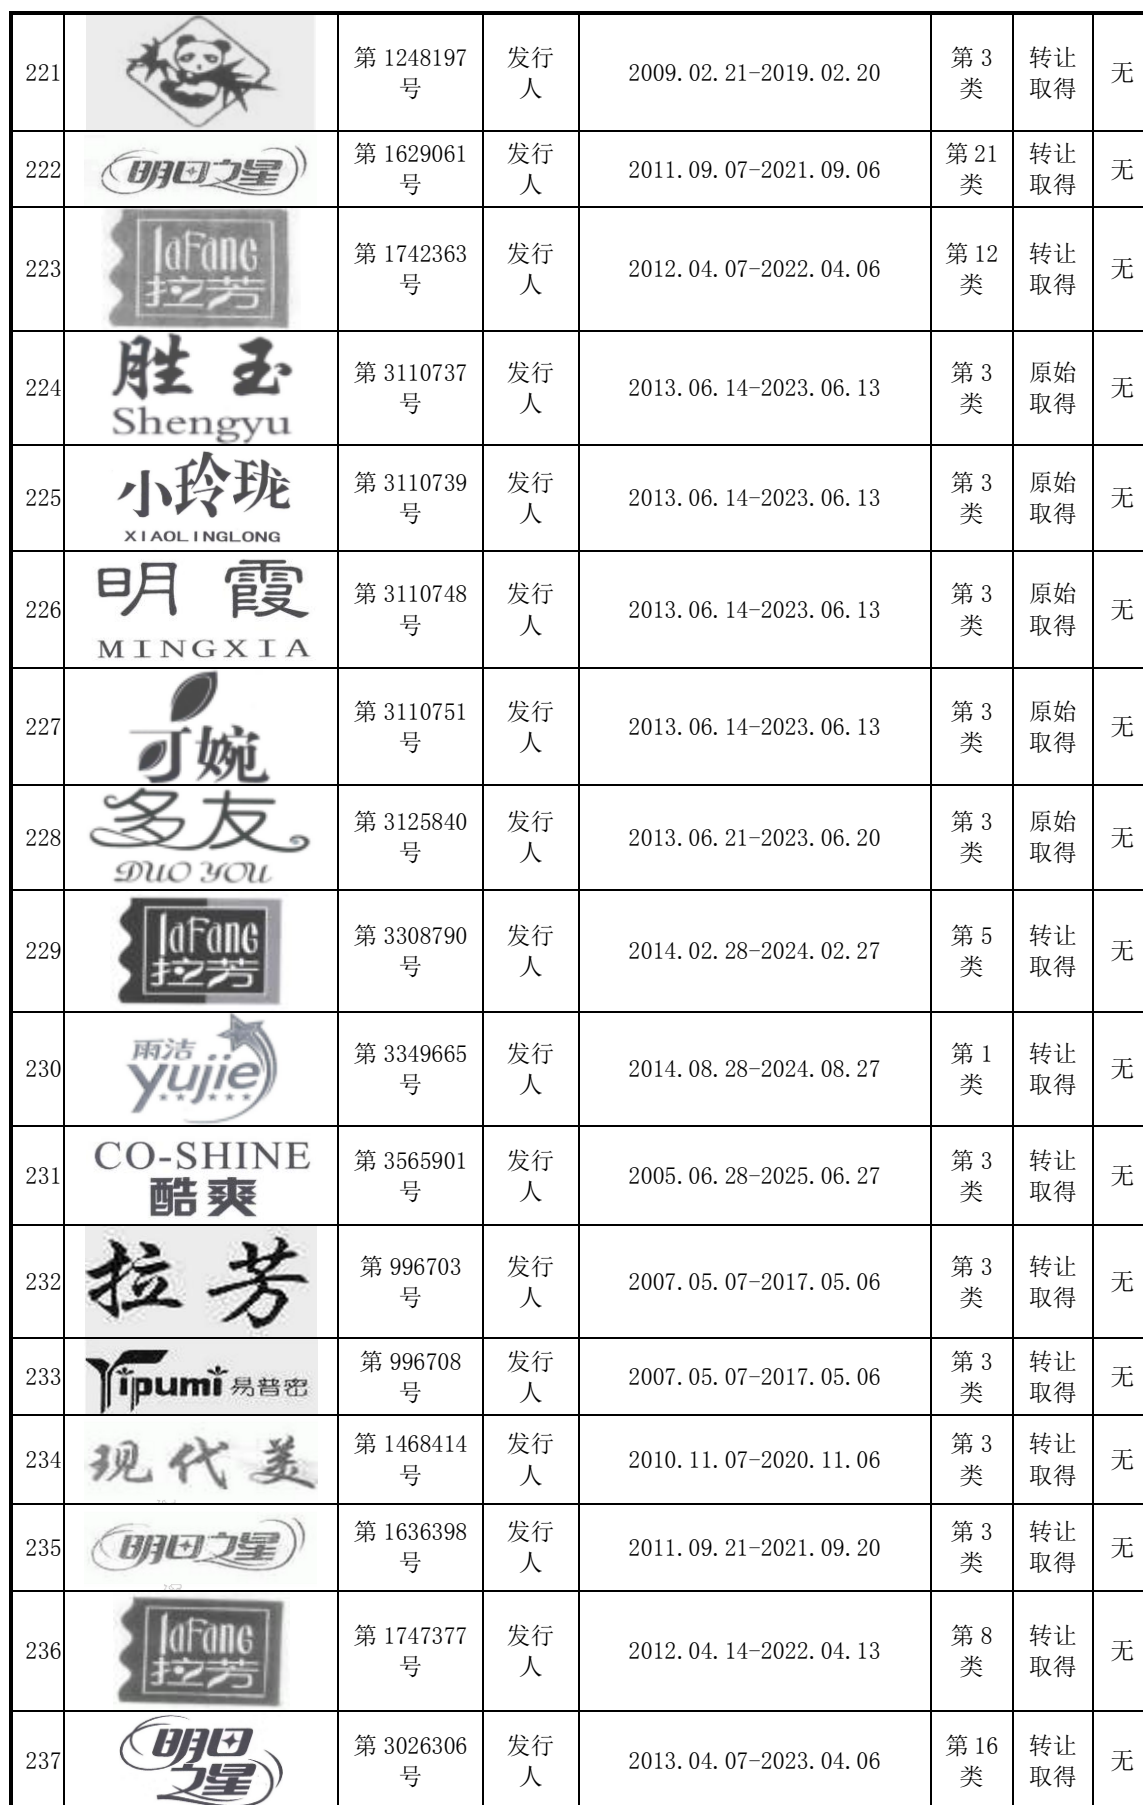 221
第 1248197
号
发行
人
2009.02.21-2019.02.20
第 3
类
转让
取得
无
222
明日之星
第 1629061
号
发行
人
2011.09.07-2021.09.06
第 21
类
转让
取得
无
223
laFang
拉芳
第 1742363
号
发行
人
2012.04.07-2022.04.06
第 12
类
转让
取得
无
224
胜玉
Shengyu
第 3110737
号
发行
人
2013.06.14-2023.06.13
第 3
类
原始
取得
无
225
小玲珑
XIAOLINGLONG
第 3110739
号
发行
人
2013.06.14-2023.06.13
第 3
类
原始
取得
无
226
明霞
MINGXIA
第 3110748
号
发行
人
2013.06.14-2023.06.13
第 3
类
原始
取得
无
227
可婉
第 3110751
号
发行
人
2013.06.14-2023.06.13
第 3
类
原始
取得
无
228
多友
DUO YOU
第 3125840
号
发行
人
2013.06.21-2023.06.20
第 3
类
原始
取得
无
229
laFang
拉芳
第 3308790
号
发行
人
2014.02.28-2024.02.27
第 5
类
转让
取得
无
230
雨洁
yujie
第 3349665
号
发行
人
2014.08.28-2024.08.27
第 1
类
转让
取得
无
231
CO-SHINE
酷爽
第 3565901
号
发行
人
2005.06.28-2025.06.27
第 3
类
转让
取得
无
232
拉芳
第 996703
号
发行
人
2007.05.07-2017.05.06
第 3
类
转让
取得
无
233
Yipumi 易普密
第 996708
号
发行
人
2007.05.07-2017.05.06
第 3
类
转让
取得
无
234
现代美
第 1468414
号
发行
人
2010.11.07-2020.11.06
第 3
类
转让
取得
无
235
明日之星
第 1636398
号
发行
人
2011.09.21-2021.09.20
第 3
类
转让
取得
无
236
laFang
拉芳
第 1747377
号
发行
人
2012.04.14-2022.04.13
第 8
类
转让
取得
无
237
明日
之星
第 3026306
号
发行
人
2013.04.07-2023.04.06
第 16
类
转让
取得
无